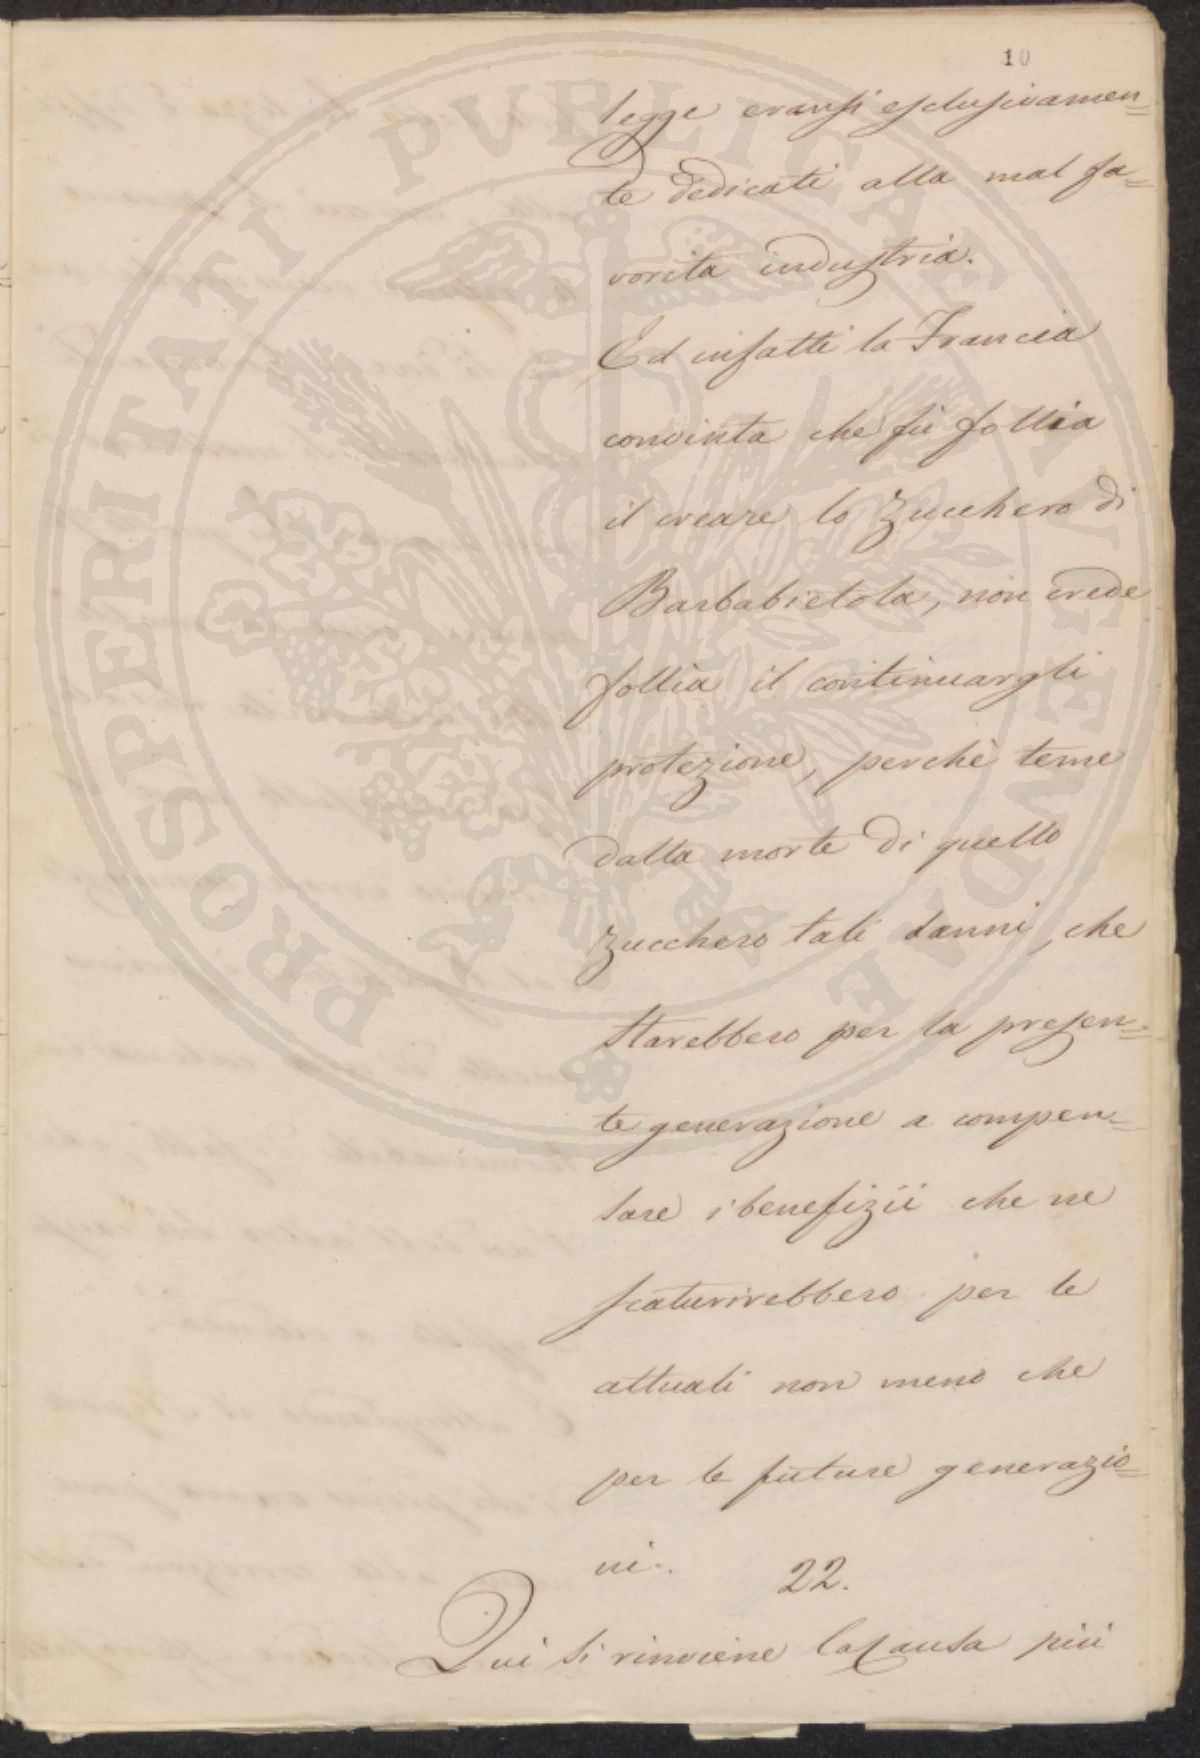 10
legge eransi esclusivamen=
te dedicati alla mal fa=
vorita industria.
Ed infatti la Francia
convinta che fù follia
il creare lo Zucchero di
Barbabietola, non crede
follia il continuargli
protezione, perchè teme
dalla morte di quello
Zucchero tali danni, che
starebbero per la presen=
te generazione a compen=
sare i benefizii che ne
scaturirebbero per le
attuali non meno che
per le future generazio=
ni.
22.
Qui si rinviene la Causa più
PROSPERITATI PVBLICAE AVGENDAE